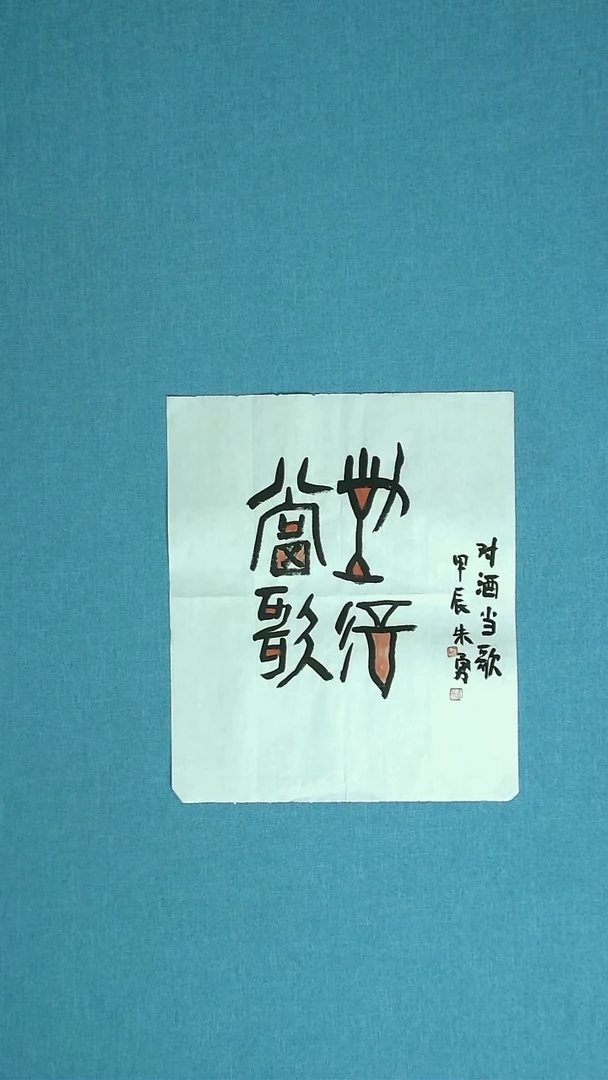 對酒
當歌
对酒当歌
甲辰朱勇